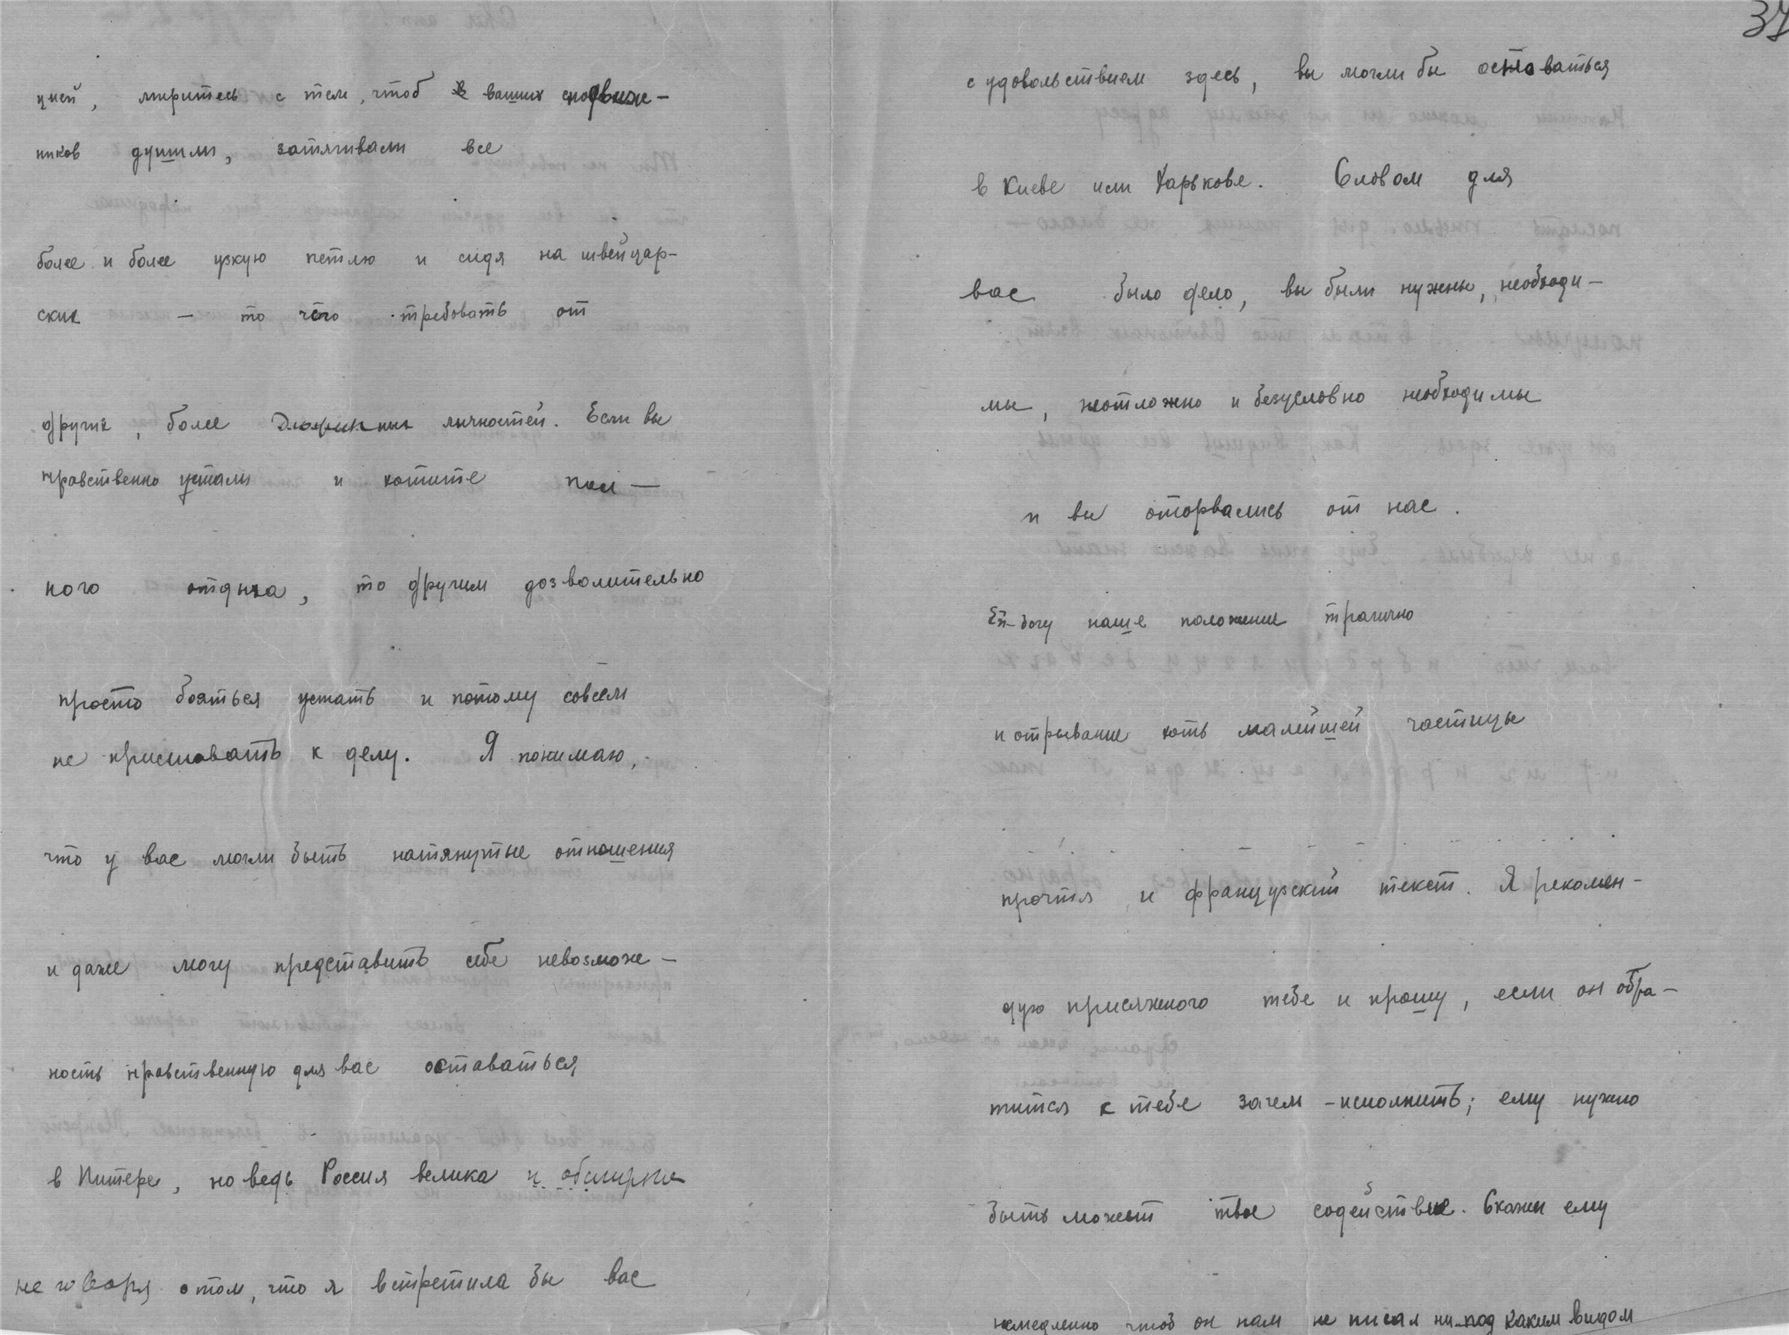 цией, миритесь с тем, чтоб ваших сподвиж-
ников душили, затягивали все
более и более узкую петлю и сидя на швейцар-
ских — то чего требовать от
других, более личностей. Если вы
нравственно устали и хотите пол-
ного отдыха, то другим дозволительно
просто бояться устать и потому совсем
не приставать к делу. Я понимаю,
что у вас могли быть натянутые отношения
и даже могу представить себе невозмож-
ность нравственную для вас оставаться
в Питере, но ведь Россия велика и обширна
не говоря о том, что я встретила бы вас
37
с удовольствием здесь, вы могли бы оставаться
в Киеве или Харькове. Словом для
вас было дело, вы были нужны, необходи-
мы, неотложно и безусловно необходимы
и вы оторвались от нас.
Ей-богу наше положение трагично
и отрывание хоть малейшей частицы
прочтя и французский текст. Я рекомен-
дую присяжного тебе и прошу, если он обра-
тится к тебе зачем - исполнить; ему нужно
быть может твое содействие. Скажи ему
немедленно чтоб он нам не писал ни под каким видом